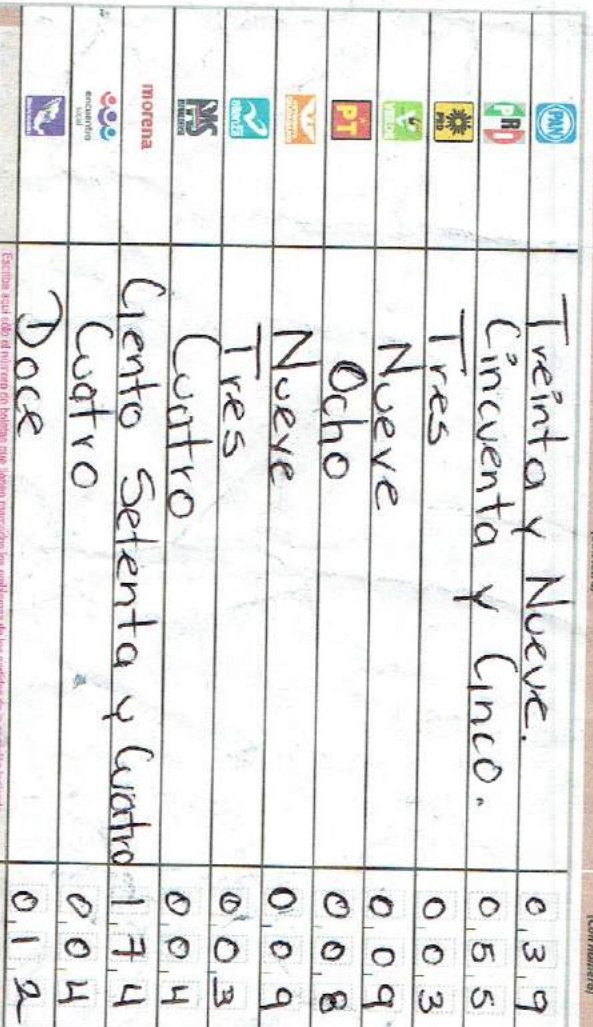 (con número)
PAN Treinta y Nueve. 039
PRI Cincuenta y Cinco. 055
PRD Tres 003
VERDE Nueve 009
PT Ocho 008
Nueve 009
alianza Tres 003
Cuatro 004
morena Ciento Setenta y Cuatro 174
encuentro social Cuatro 004
Doce 012
Escriba aquí sólo el número de boletas que tienen marcados los emblemas de los partidos